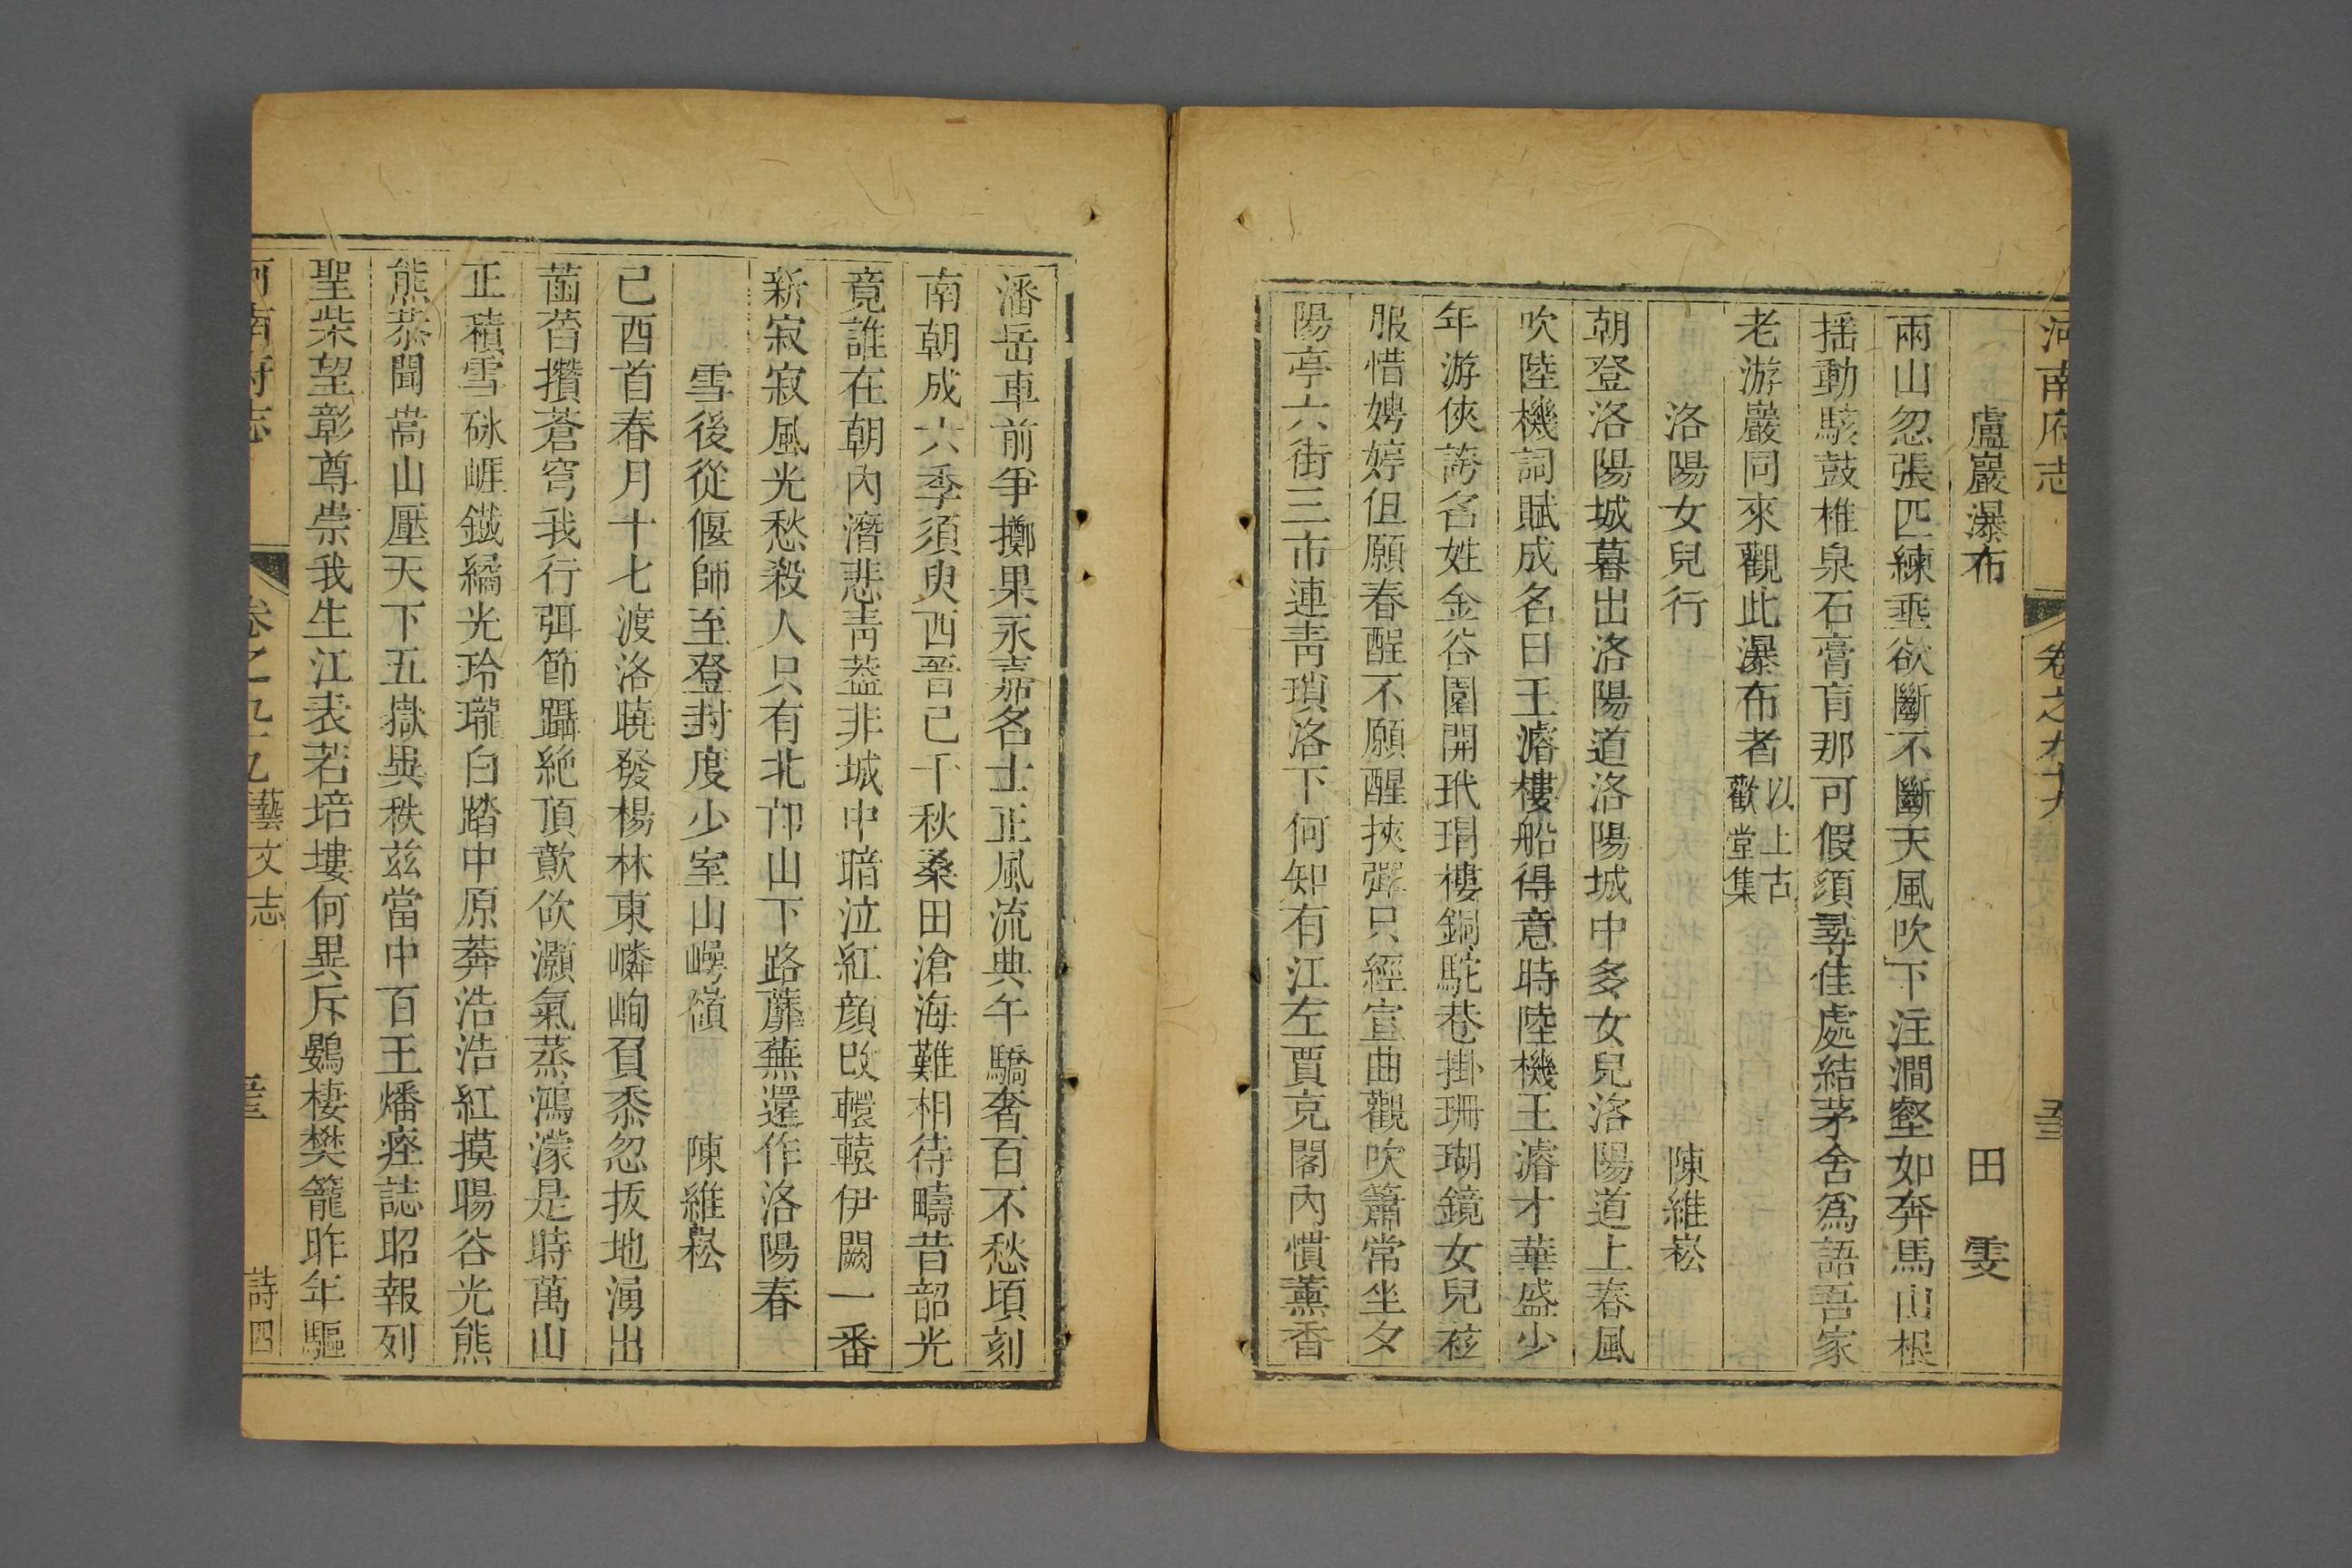 河南府志 卷之九十九
盧巖瀑布 田雯
兩山忽張匹練垂欲斷不斷天風吹下注澗壑如奔馬山根
揺動駭鼓椎泉石膏肓那可假須尋佳處結茅舍爲語吾家
老游巖同來觀此瀑布者以上古歡堂集
洛陽女兒行 陳維崧
朝登洛陽城暮出洛陽道洛陽城中多女兒洛陽道上春風
吹陸機詞賦成名日王濬樓船得意時陸機王濬才華盛少
年游俠誇名姓金谷園開玳瑁樓銅駝巷掛珊瑚鏡女兒袨
服惜娉婷但願春酲不願醒挾彈只經宣曲觀吹簫常坐夕
陽亭六街三市連靑瑣洛下何知有江左賈充閣內慣薰香
潘岳車前爭擲果永嘉名士正風流典午驕奢百不愁頃刻
南朝成六季須臾西晉已千秋桑田滄海難相待疇昔韶光
竟誰在朝內潛悲靑葢非城中暗泣紅顔改轘轅伊闕一番
新寂寂風光愁殺人只有北邙山下路蘼蕪還作洛陽春
雪後從偃師至登封度少室山崿嶺 陳維崧
已酉首春月十七渡洛曉發楊林東嶙峋負黍忽拔地湧出
菡萏攢蒼穹我行弭節躡絶頂歕欲灝氣蒸鴻濛是時萬山
正積雪砅崕鐵繘光玲瓏白踏中原莽浩浩紅摸暘谷光熊
熊恭聞嵩山壓天下五嶽與秩兹當中百王燔瘞誌昭報列
聖柴望彰尊崇我生江表若培塿何異斥鷃棲樊籠昨年驅
河南府志 卷之九十九 藝文志 詩四